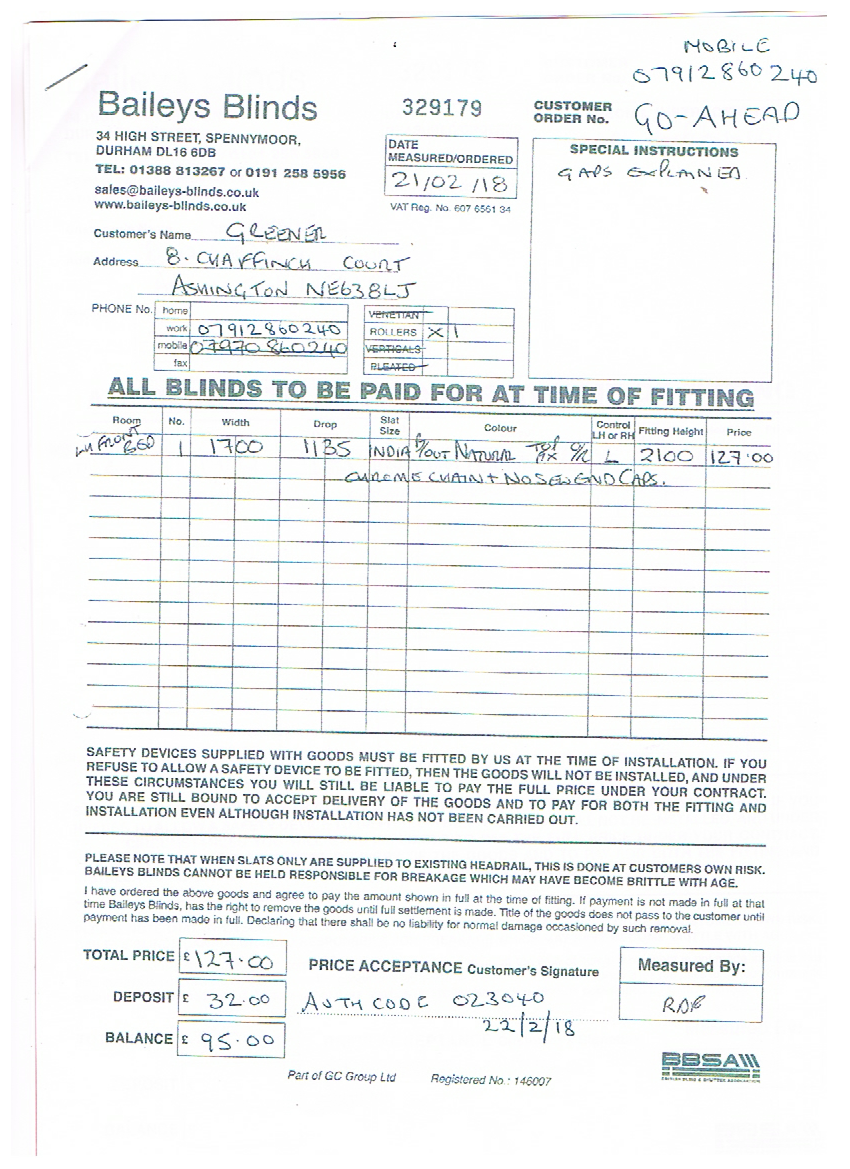 MOBILE
07912860240
Baileys Blinds
329179
CUSTOMER
ORDER No.
GO-AHEAD
34 HIGH STREET, SPENNYMOOR,
DURHAM DL16 6DB
TEL: 01388 813267 or 0191 258 5956
sales@baileys-blinds.co.uk
www.baileys-blinds.co.uk
DATE
MEASURED/ORDERED
21/02/18
VAT Reg. No. 607 6561 34
SPECIAL INSTRUCTIONS
GAPS EXPLAINED
Customer's Name GREENER
Address 8. CHAFFINCH COURT
ASHINGTON NE638LJ
PHONE No. home
work 07912860240
mobile 07970 860240
fax
VENETIAN
ROLLERS X 1
VERTICALS
PLEATED
ALL BLINDS TO BE PAID FOR AT TIME OF FITTING
Room No. Width Drop Slat Size Colour Control LH or RH Fitting Height Price
LH FRONT BED 1 1700 1135 INDIA B/OUT NATURAL TOP FIX O/R L 2100 127.00
CHROME CHAIN + NOSEN END CAPS.
SAFETY DEVICES SUPPLIED WITH GOODS MUST BE FITTED BY US AT THE TIME OF INSTALLATION. IF YOU
REFUSE TO ALLOW A SAFETY DEVICE TO BE FITTED, THEN THE GOODS WILL NOT BE INSTALLED, AND UNDER
THESE CIRCUMSTANCES YOU WILL STILL BE LIABLE TO PAY THE FULL PRICE UNDER YOUR CONTRACT.
YOU ARE STILL BOUND TO ACCEPT DELIVERY OF THE GOODS AND TO PAY FOR BOTH THE FITTING AND
INSTALLATION EVEN ALTHOUGH INSTALLATION HAS NOT BEEN CARRIED OUT.
PLEASE NOTE THAT WHEN SLATS ONLY ARE SUPPLIED TO EXISTING HEADRAIL, THIS IS DONE AT CUSTOMERS OWN RISK.
BAILEYS BLINDS CANNOT BE HELD RESPONSIBLE FOR BREAKAGE WHICH MAY HAVE BECOME BRITTLE WITH AGE.
I have ordered the above goods and agree to pay the amount shown in full at the time of fitting. If payment is not made in full at that
time Baileys Blinds, has the right to remove the goods until full settlement is made. Title of the goods does not pass to the customer until
payment has been made in full. Declaring that there shall be no liability for normal damage occasioned by such removal.
TOTAL PRICE £127.00
DEPOSIT £ 32.00
BALANCE £ 95.00
PRICE ACCEPTANCE Customer's Signature
AUTH CODE 023040
22/2/18
Measured By:
BBSA
BRITISH BLIND & SHUTTER ASSOCIATION
Part of GC Group Ltd Registered No.: 146007